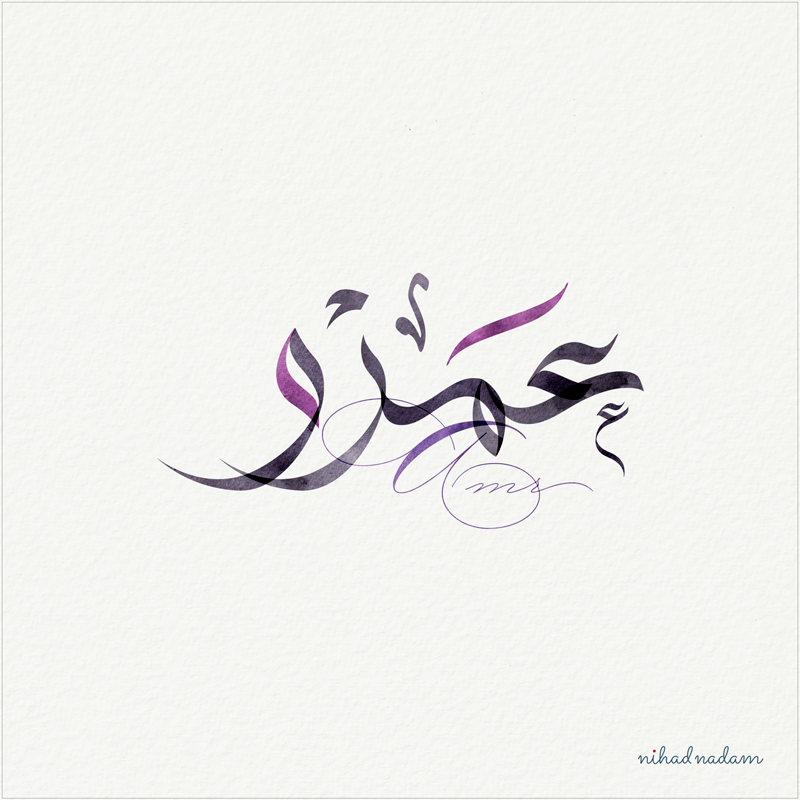 عمرو
ع
Amr
nihad nadam